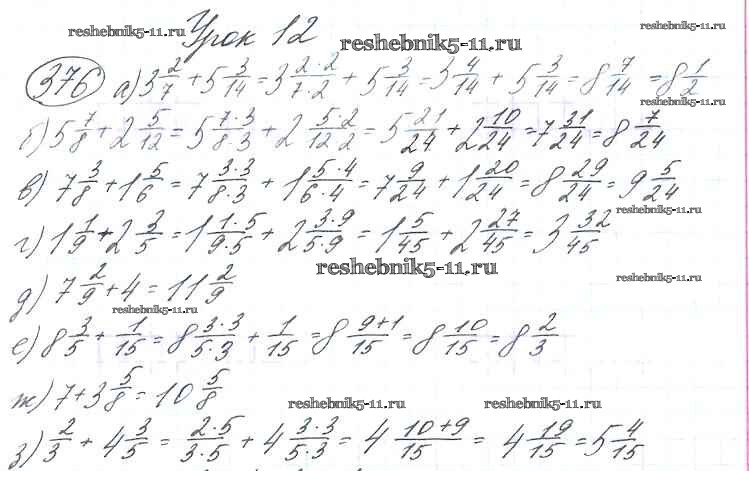 reshebnik5-11.ru
Урок 12 reshebnik5-11.ru reshebnik5-11.ru
376 а) 3 2/7 + 5 3/14 = 3 2·2/7·2 + 5 3/14 = 3 4/14 + 5 3/14 = 8 7/14 = 8 1/2
б) 5 7/8 + 2 5/12 = 5 7·3/8·3 + 2 5·2/12·2 = 5 21/24 + 2 10/24 = 7 31/24 = 8 7/24
в) 7 3/8 + 1 5/6 = 7 3·3/8·3 + 1 5·4/6·4 = 7 9/24 + 1 20/24 = 8 29/24 = 9 5/24
reshebnik5-11.ru
г) 1 1/9 + 2 3/5 = 1 1·5/9·5 + 2 3·9/5·9 = 1 5/45 + 2 27/45 = 3 32/45
reshebnik5-11.ru reshebnik5-11.ru
д) 7 2/9 + 4 = 11 2/9
reshebnik5-11.ru
е) 8 3/5 + 1/15 = 8 3·3/5·3 + 1/15 = 8 9+1/15 = 8 10/15 = 8 2/3
ж) 7 + 3 5/8 = 10 5/8
reshebnik5-11.ru reshebnik5-11.ru
з) 2/3 + 4 3/5 = 2·5/3·5 + 4 3·3/5·3 = 4 10+9/15 = 4 19/15 = 5 4/15